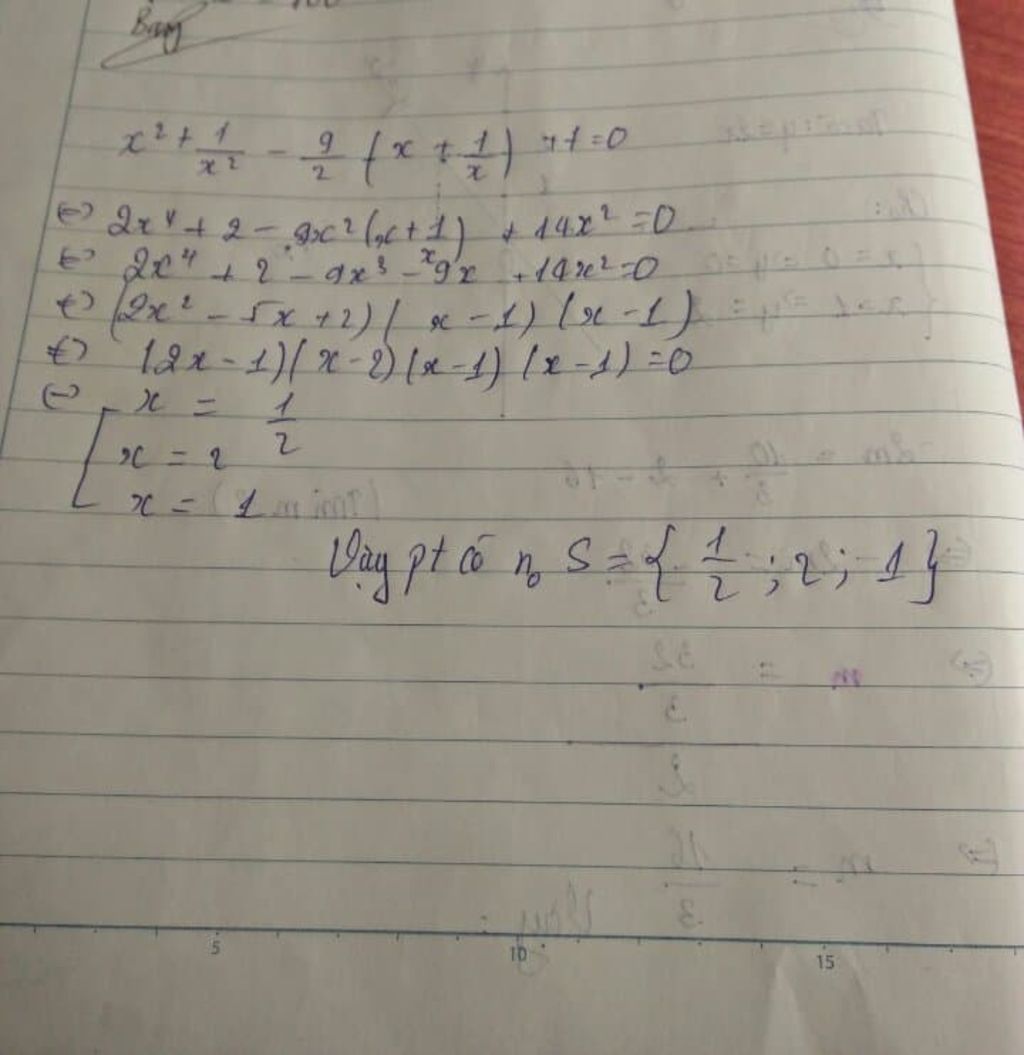 Bay
x² + 1/x² - 9/2 (x + 1/x) + 7 = 0
⇔ 2x⁴ + 2 - 9x²(x + 1/x) + 14x² = 0
⇔ 2x⁴ + 2 - 9x³ - 9x + 14x² = 0
⇔ (2x² - 5x + 2)(x - 1)(x - 1)
⇔ (2x - 1)(x - 2)(x - 1)(x - 1) = 0
⇔ [ x = 1/2
x = 2
x = 1
Vậy pt có n₀ S = { 1/2 ; 2 ; 1 }
5 10 15